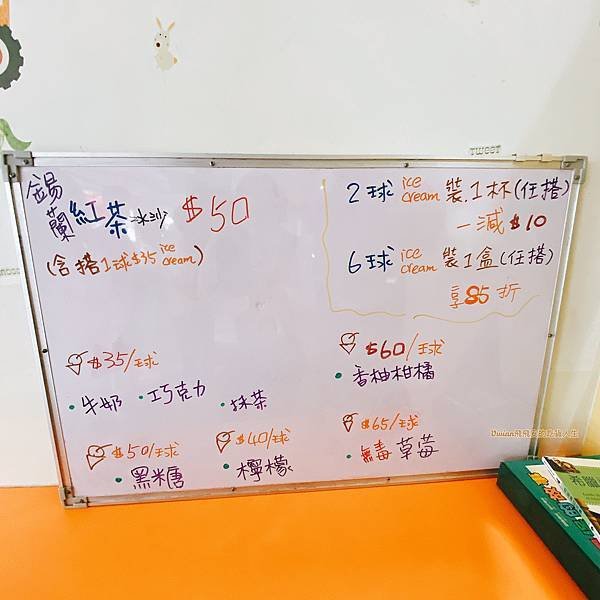 錫蘭紅茶冰沙 $50
(含搭1球$35 ice cream)
2球 ice cream 裝1杯(任搭)
一減$10
6球 ice cream 裝1盒(任搭)
享85折
$35/球
·牛奶 ·巧克力 ·抹茶
$60/球
·香柚柑橘
$50/球
·黑糖
$40/球
·檸檬
$65/球
·無毒草莓
tweet